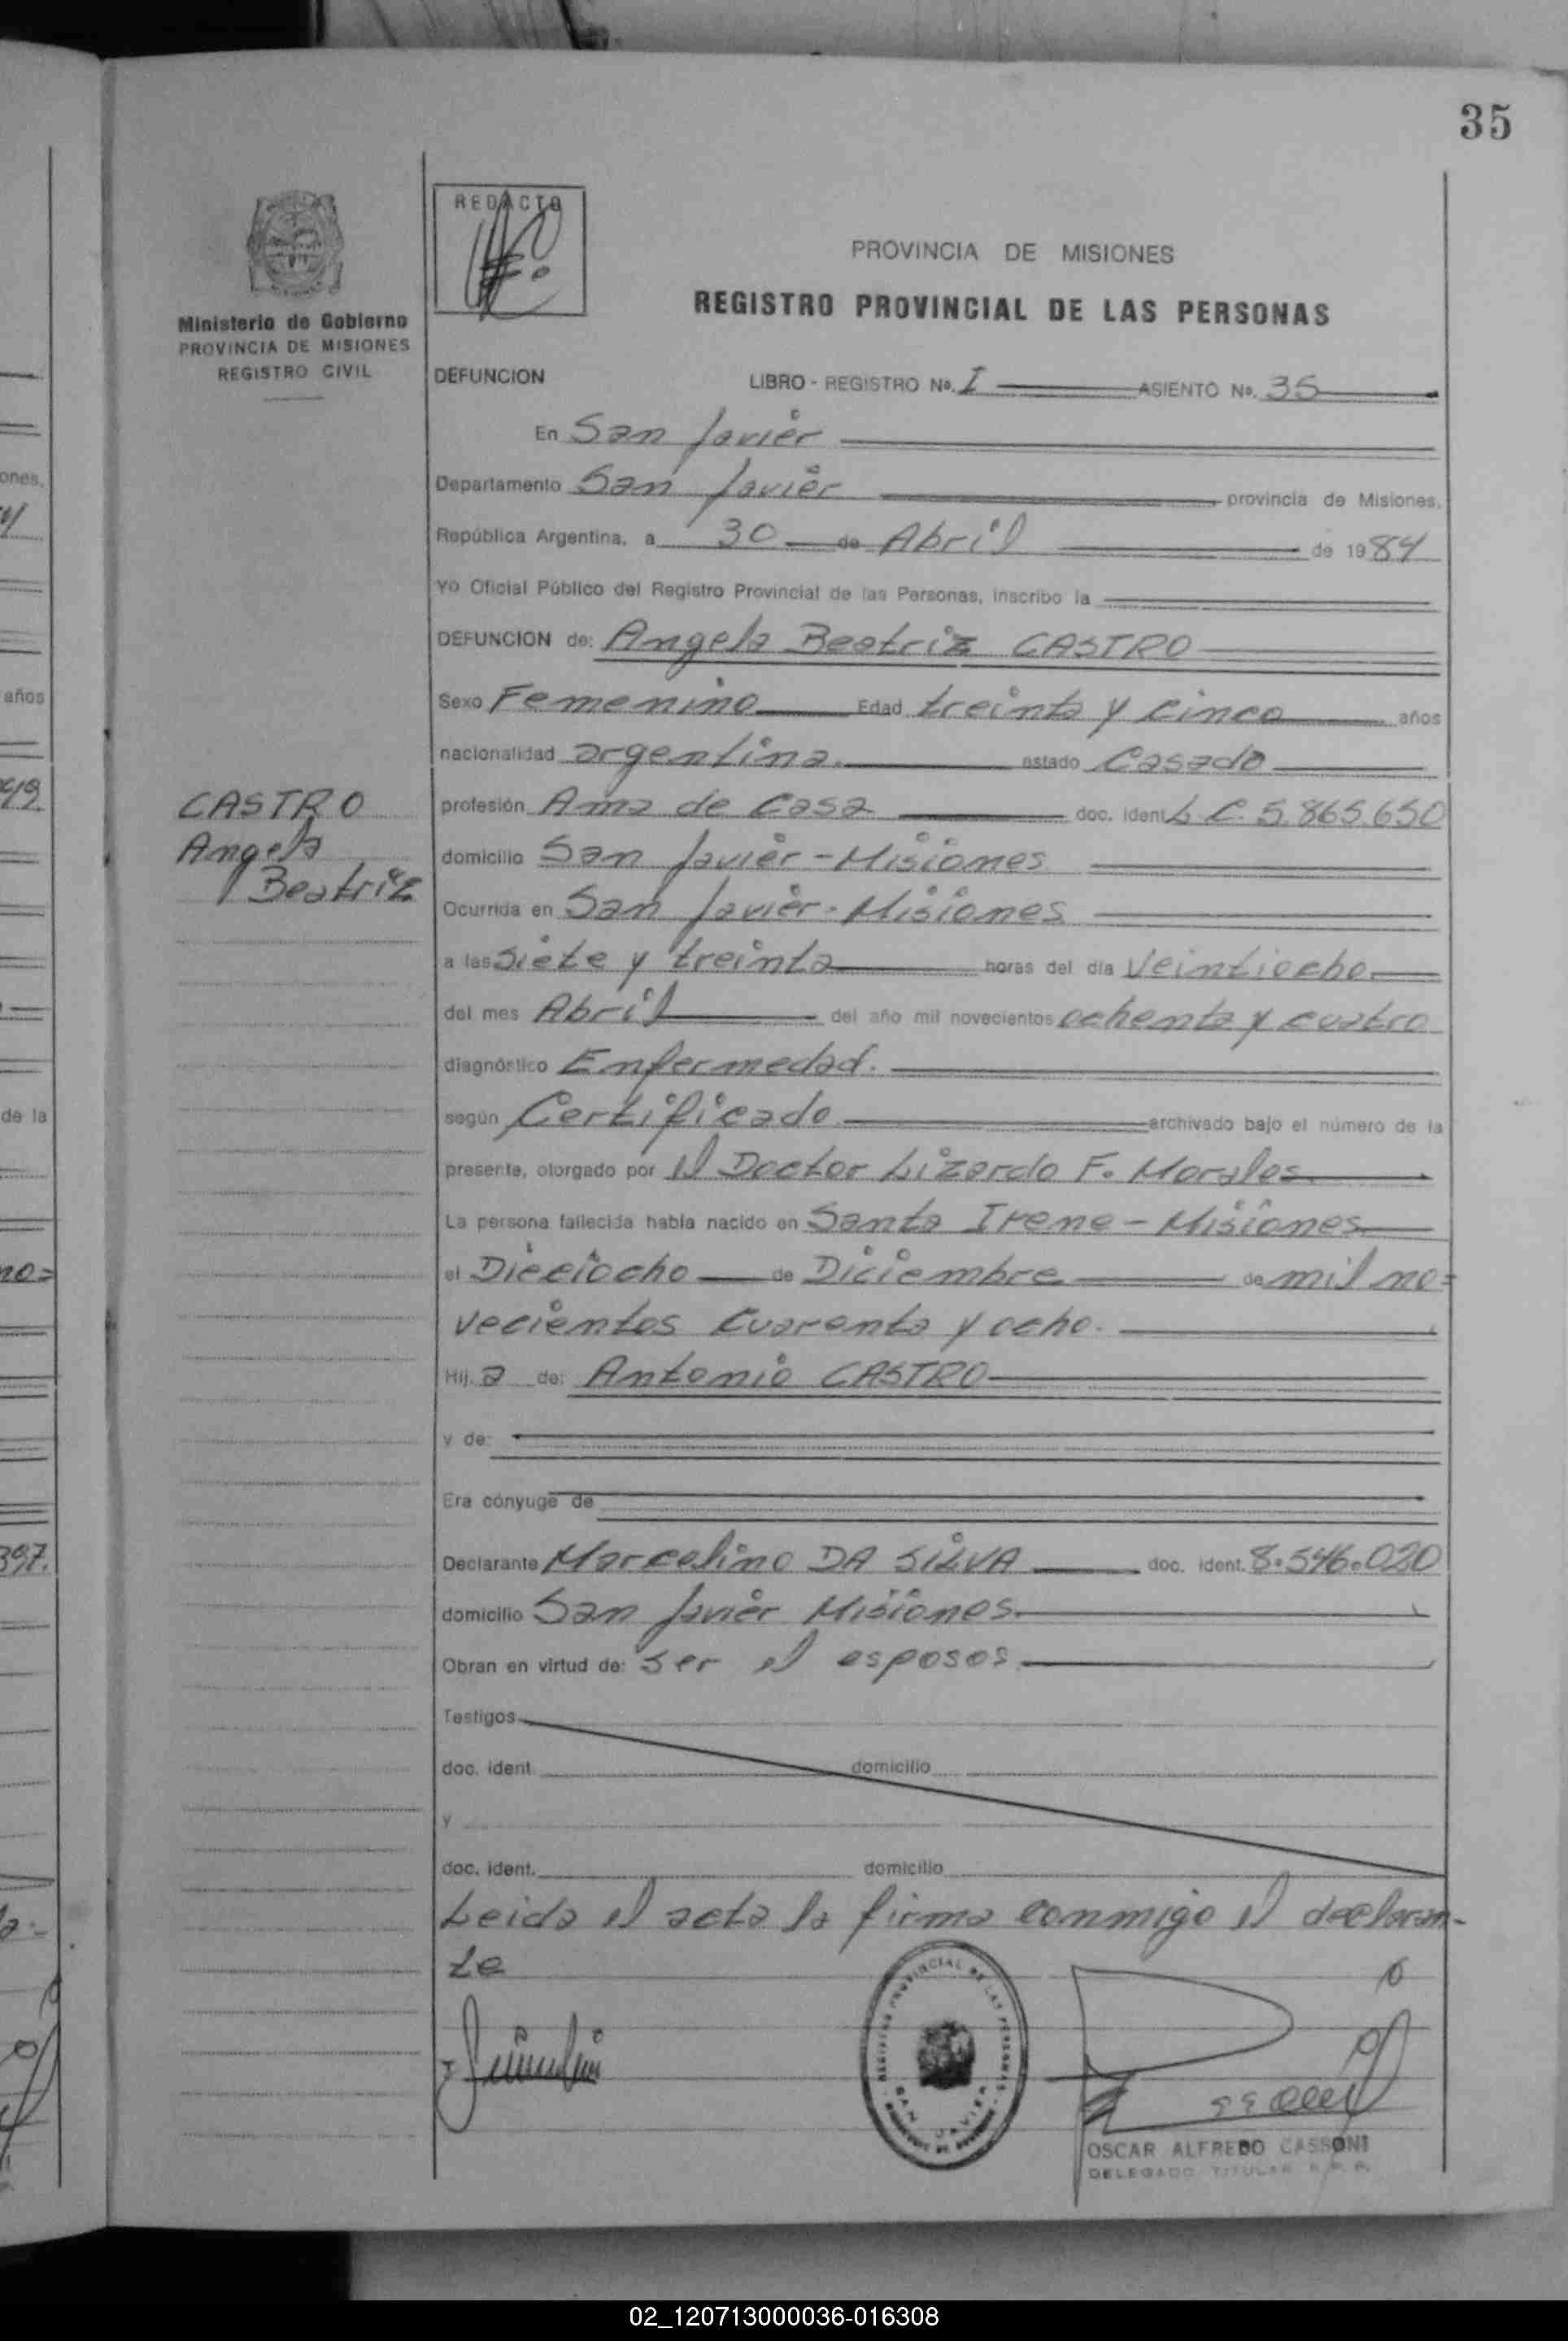 35
REDACTO
PROVINCIA DE MISIONES
REGISTRO PROVINCIAL DE LAS PERSONAS
Ministerio de Gobierno
PROVINCIA DE MISIONES
REGISTRO CIVIL
DEFUNCION LIBRO - REGISTRO No. I ASIENTO No. 35
En San Javier
Departamento San Javier provincia de Misiones,
República Argentina, a 30 de Abril de 1984
Yo Oficial Público del Registro Provincial de las Personas, inscribo la
DEFUNCION de: Angela Beatriz CASTRO
Sexo Femenino Edad treinta y cinco años
nacionalidad argentina. estado Casado
CASTRO
Angela
Beatriz
profesión Ama de Casa doc. ident L.C. 5.865.650
domicilio San Javier - Misiones
Ocurrida en San Javier - Misiones
a las siete y treinta horas del día Veintiocho
del mes Abril del año mil novecientos ochenta y cuatro
diagnóstico Enfermedad.
según Certificado archivado bajo el número de la
presente, otorgado por el Doctor Lizardo F. Morales
La persona fallecida había nacido en Santa Irene - Misiones
el Dieciocho de Diciembre de mil no=
vecientos Cuarenta y ocho.
Hij. a de: Antonio CASTRO
y de:
Era cónyuge de
Declarante Marcelino DA SILVA doc. ident. 8.546.020
domicilio San Javier Misiones
Obran en virtud de: ser el esposos
Testigos
doc. ident. domicilio
y
doc. ident. domicilio
Leida el acta la firma conmigo el declaran-
te
REGISTRO PROVINCIAL DE LAS PERSONAS
SAN JAVIER
OSCAR ALFREDO CASSONI
DELEGADO TITULAR R.P.P.
ones.
años
de la
no=
397.
02_120713000036-016308